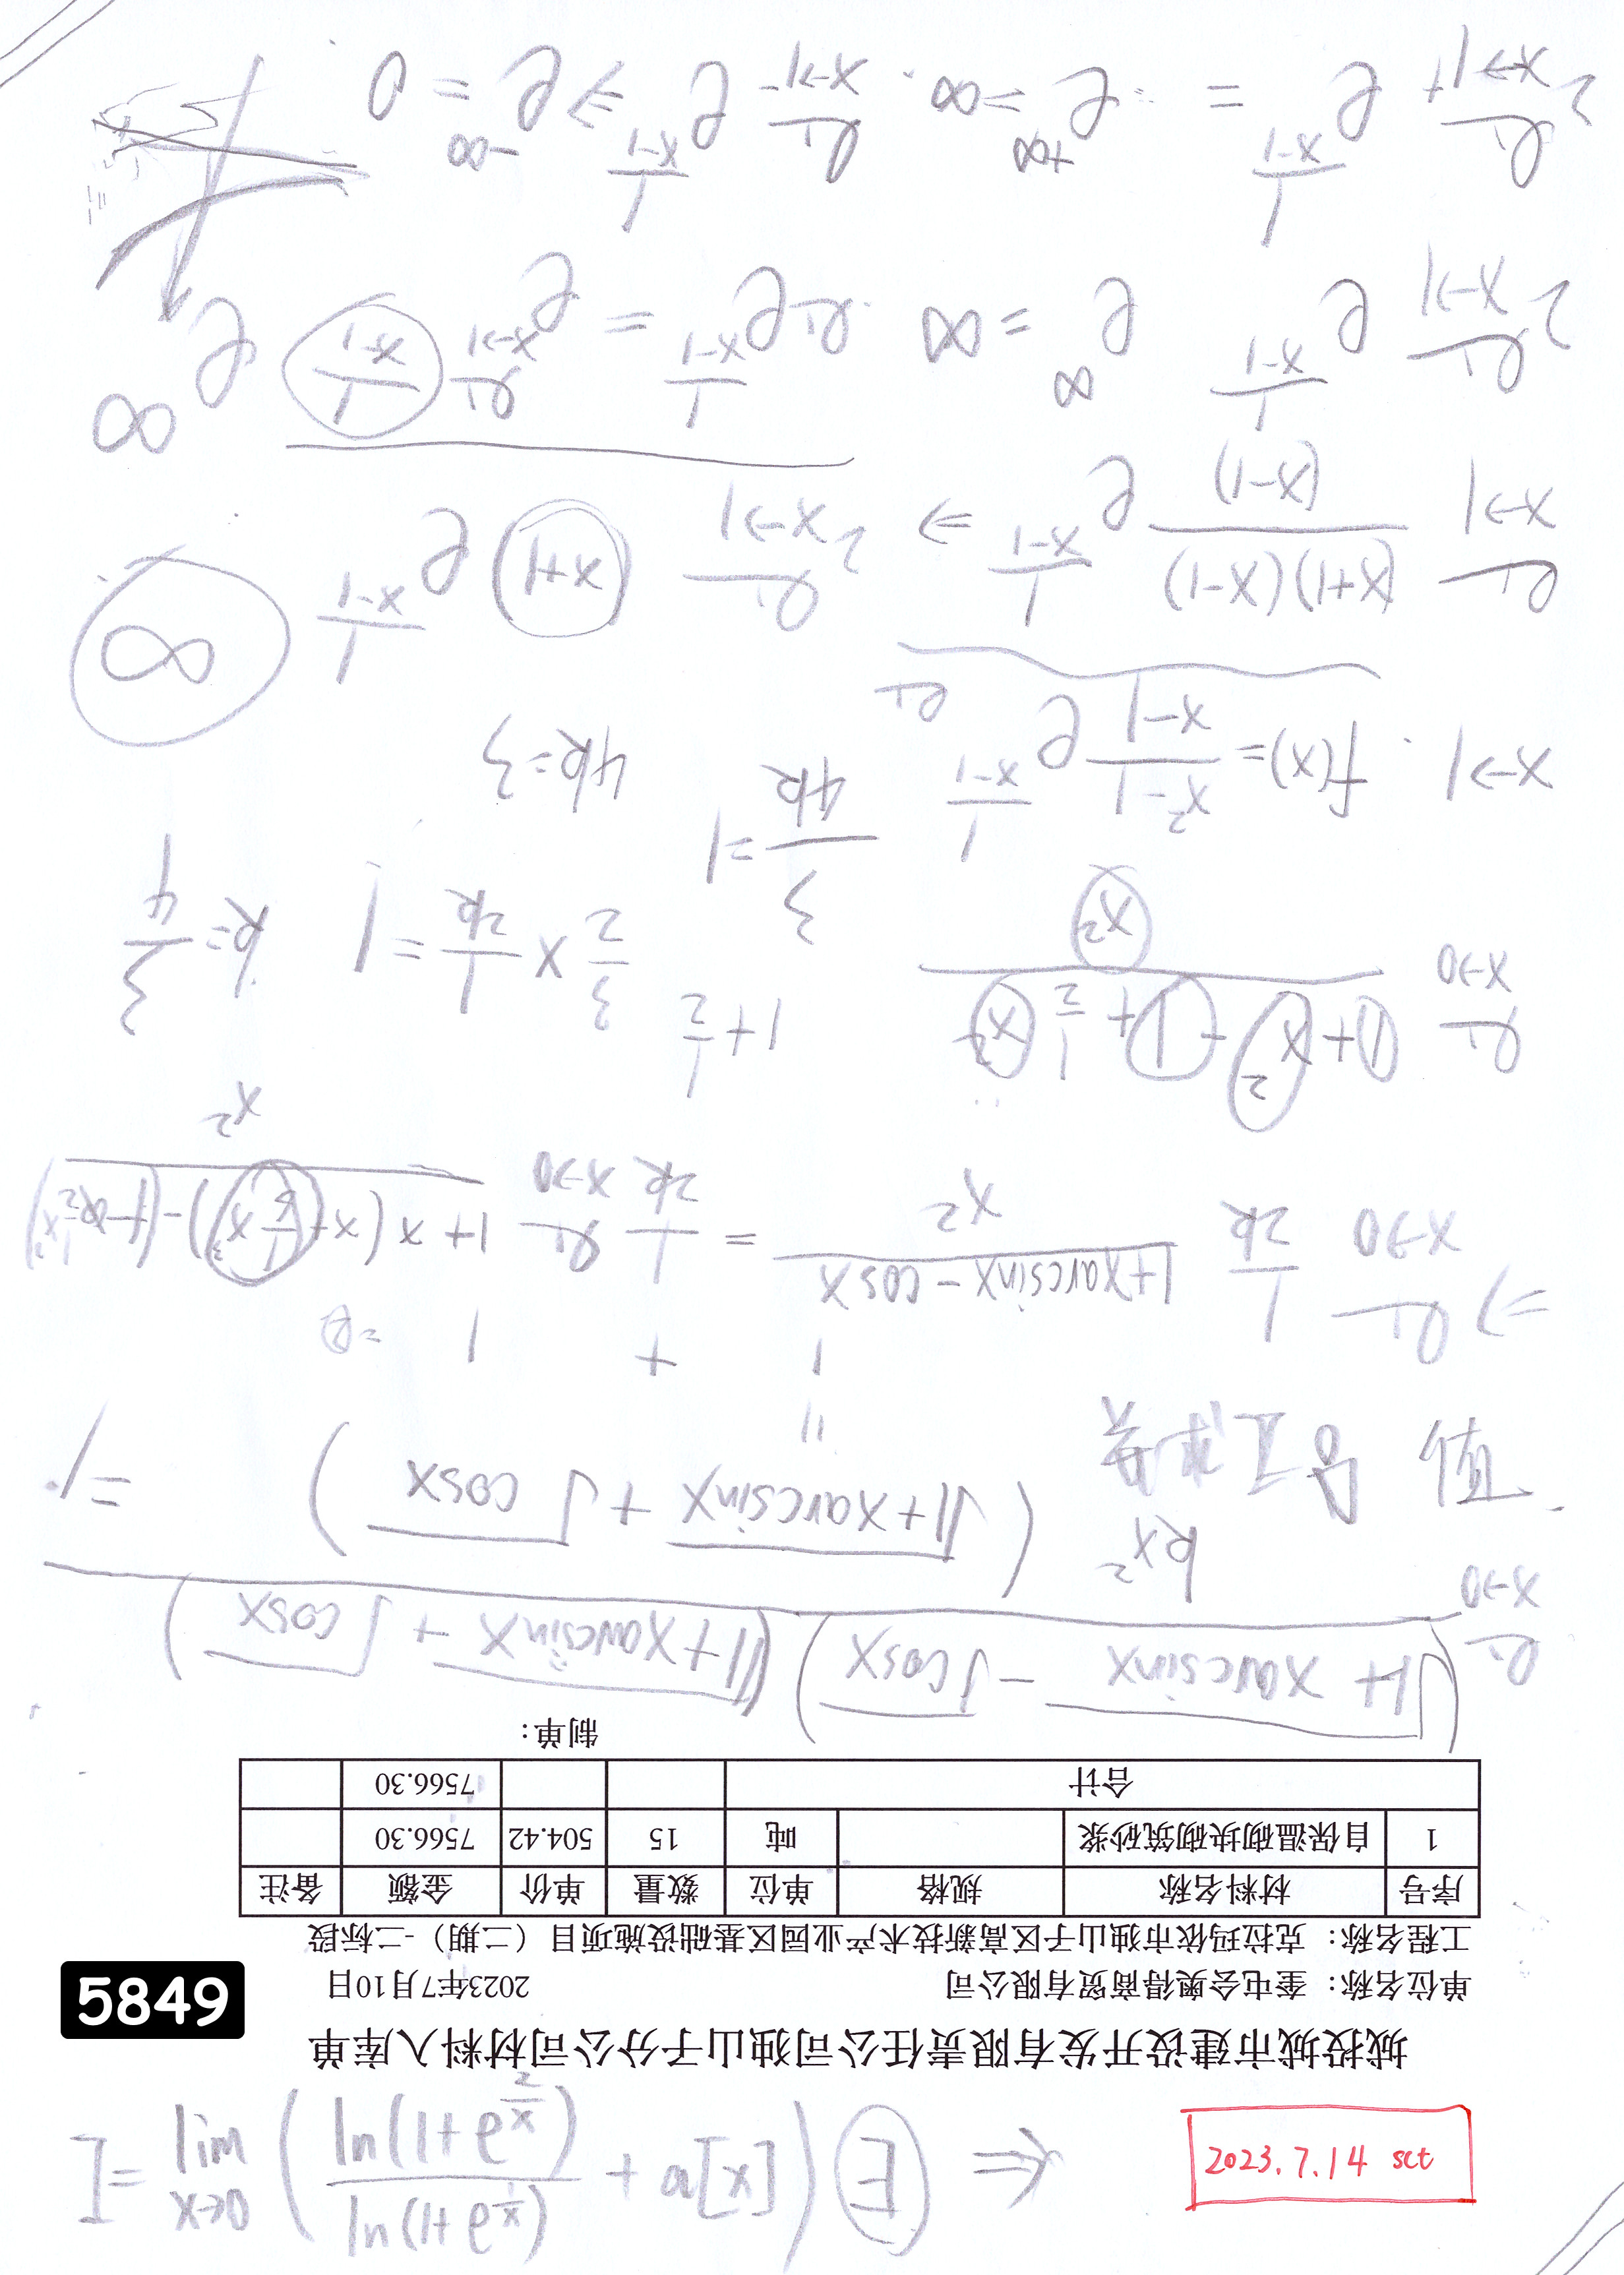 I = lim x→0 ( ln(1+e^{2/x}) / ln(1+e^{1/x}) + a[x] ) E ⇐
2023.7.14 sct
5849
城投城市建设开发有限责任公司独山子分公司材料入库单
单位名称：奎屯会奥得商贸有限公司 2023年7月10日
工程名称：克拉玛依市独山子区高新技术产业园区基础设施项目（二期）-二标段
序号 材料名称 规格 单位 数量 单价 金额 备注
1 自保温砌块砌筑砂浆 吨 15 504.42 7566.30
合计 7566.30
制单：
x→0 (√1+xarcsinx − √cosx)(√1+xarcsinx + √cosx)
kx² (√1+xarcsinx + √cosx) = 1.
值
1 + 1 =2
⇒ x→0 1/2k (1+xarcsinx−cosx)/x² = 1/2k x→0 (1+x(x+1/6x³)−(1−1/2x²))/x²
x→0 (1+x²−1+1/2x²)/x² 1+1/2 3/2 × 1/2k = 1 k=3/4
3/4k =1 4k=3
x→1. f(x)= (x²−1)/(x−1) e^{1/(x−1)}
x→1 (x+1)(x−1)/(x−1) e^{1/(x−1)} ⇒ 2 x→1 (x+1) e^{1/(x−1)} ∞
2 x→1 e^{1/(x−1)} e^∞ =∞ e^{1/(x−1)} = e^{x→1 1/(x−1)} e^∞
2 x→1⁺ e^{1/(x−1)} = e^{+∞} =∞. x→1⁻ e^{1/(x−1)} ⇒ e^{−∞} = 0